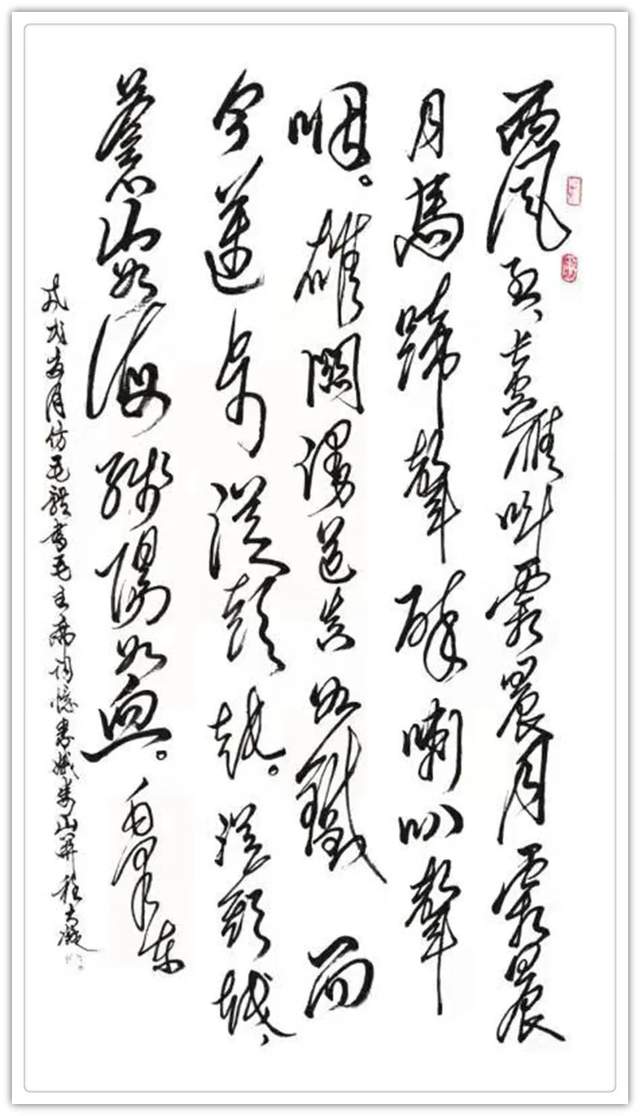 西風烈、長空雁叫霜晨月霜晨
月馬蹄聲碎喇叭聲
咽。雄關漫道真如鐵而
今邁步從頭越。從頭越、
蒼山如海殘陽如血。毛澤東
戊戌月仿毛體書毛主席词憶秦娥娄山关程大